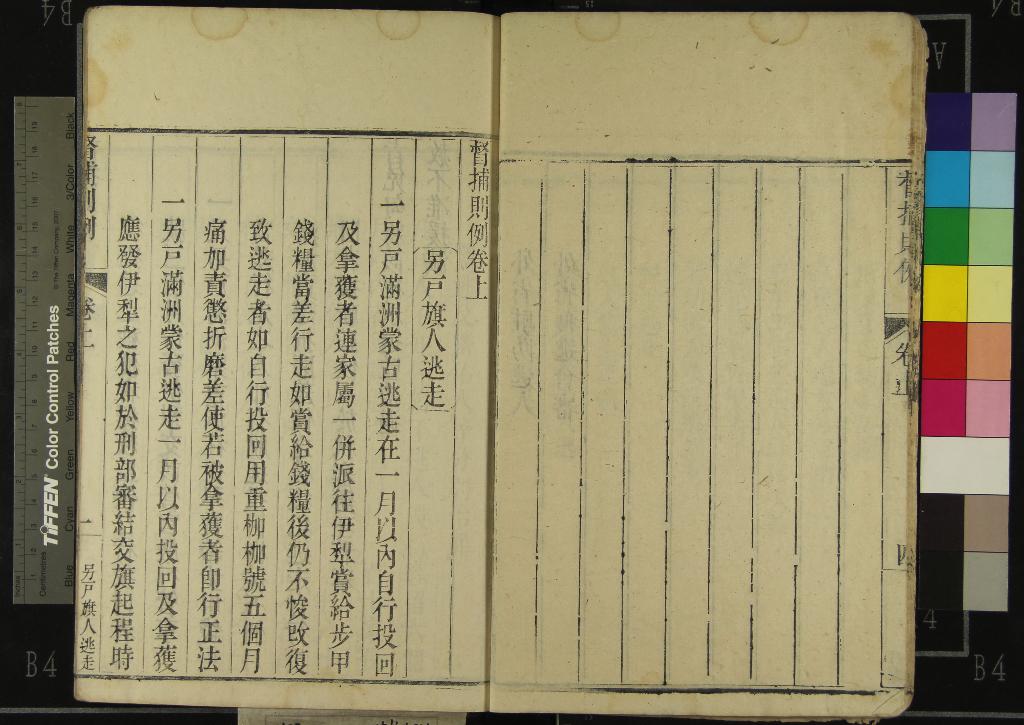 督捕則例
卷上
四
督捕則例卷上
另戸旗人逃走
一另戸滿洲蒙古逃走在一月以內自行投回
及拿獲者連家屬一併派往伊犁賞給步甲
錢糧當差行走如賞給錢糧後仍不悛改復
致逃走者如自行投回用重枷枷號五個月
痛加責懲折磨差使若被拿獲者卽行正法
一另戸滿洲蒙古逃走一月以內投回及拿獲
應發伊犁之犯如於刑部審結交旗起程時
督捕則例
卷上
一
另戸旗人逃走
B4
B4
B4
TIFFEN Color Control Patches
© The Tiffen Company, 2007
Inches
Centimetres
Blue
Cyan
Green
Yellow
Red
Magenta
White
3/Color
Black